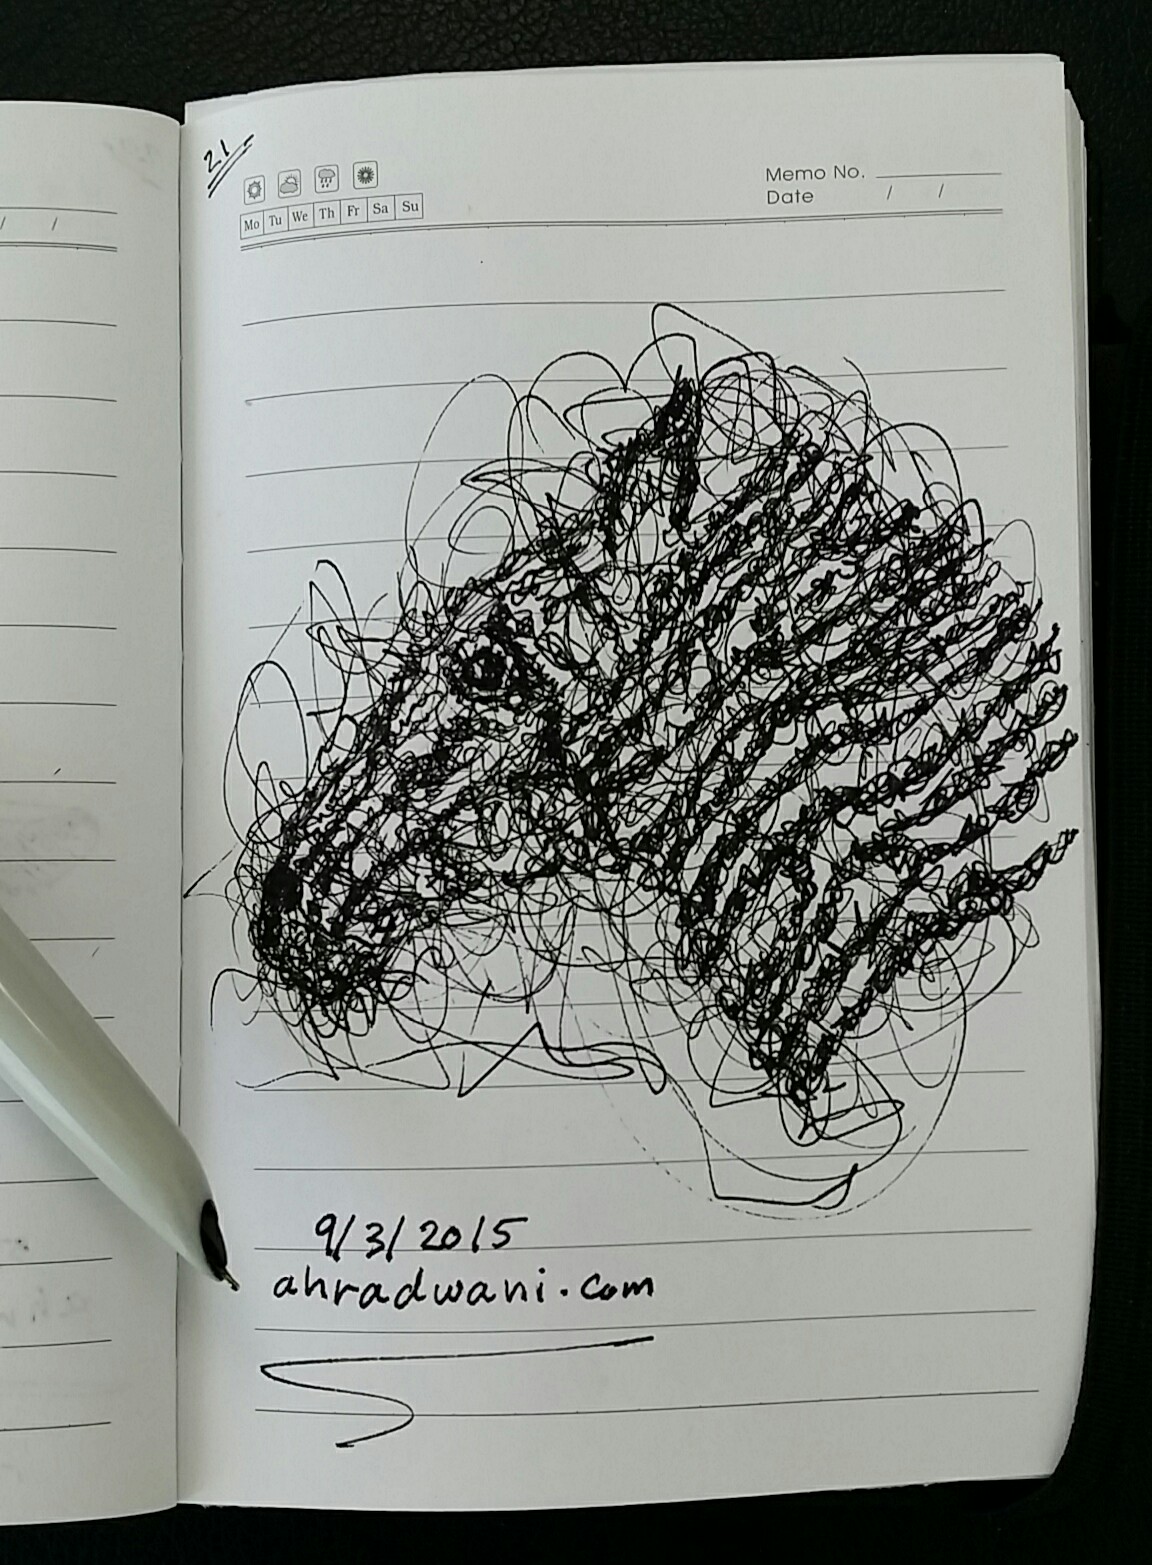 21
Memo No.
Mo Tu We Th Fr Sa Su
Date / /
/ /
9/3/2015
ahradwani.com